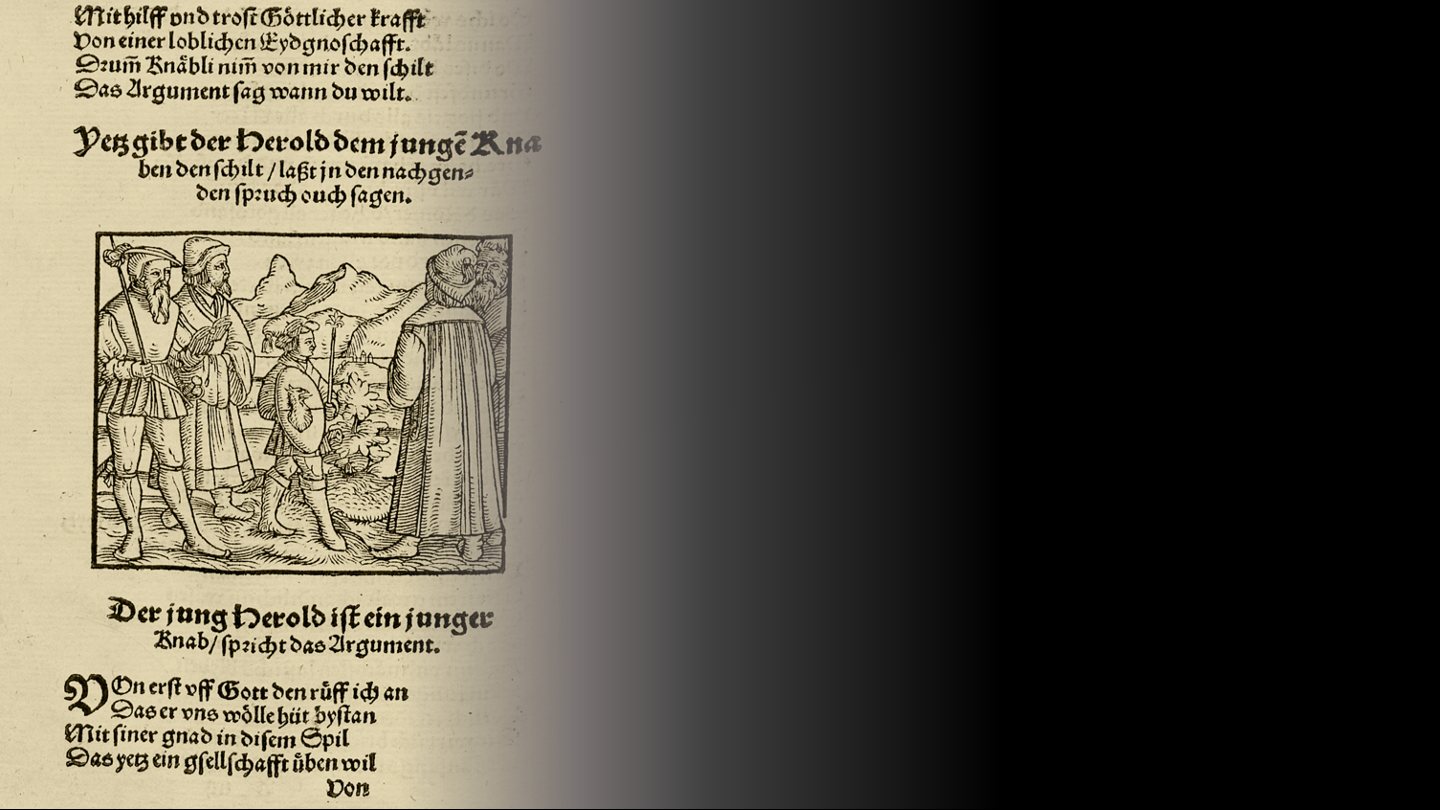 Mit hilff vnd trost Göttlicher krafft
Von einer loblichen Eydgnoschafft.
Drum̃ Knäbli nim̃ von mir den schilt
Das Argument sag wann du wilt.
Yetz gibt der Herold dem jungẽ Kna
ben den schilt / laßt jn den nachgen⸗
den spruch ouch sagen.
Der jung Herold ist ein junger
Knab / spricht das Argument.
VOn erst vff Gott den rüff ich an
Das er vns wölle hüt bystan
Mit siner gnad in disem Spil
Das yetz ein gsellschafft üben wil
Von